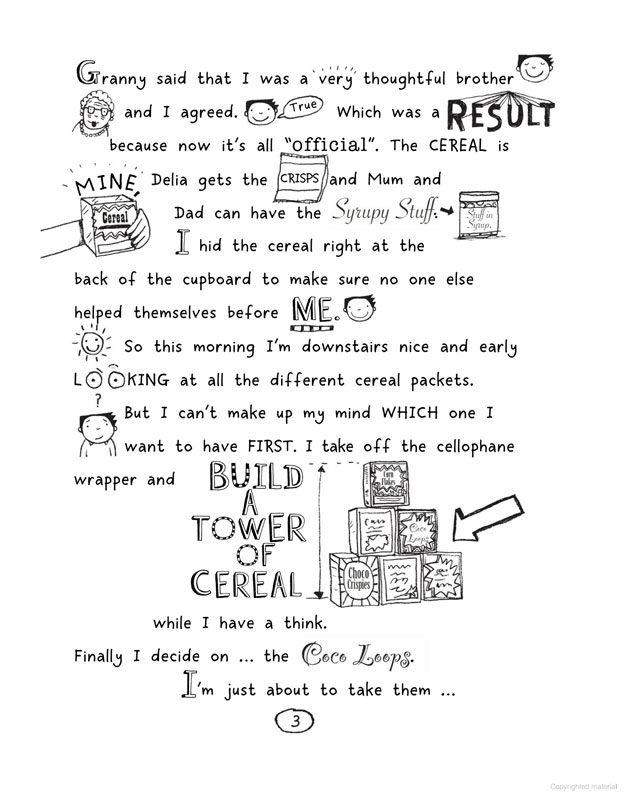 Granny said that I was a very thoughtful brother
and I agreed. True Which was a RESULT
because now it's all "official". The CEREAL is
MINE, Delia gets the CRISPS and Mum and
Cereal
Dad can have the Syrupy Stuff. Stuff in Syrup.
I hid the cereal right at the
back of the cupboard to make sure no one else
helped themselves before ME.
So this morning I'm downstairs nice and early
LOOKING at all the different cereal packets.
?
But I can't make up my mind WHICH one I
want to have FIRST. I take off the cellophane
wrapper and BUILD
A
TOWER
OF
CEREAL
Corn Flakes
Coco Loops
Choco Crispies
while I have a think.
Finally I decide on ... the Coco Loops.
I'm just about to take them ...
3
Copyrighted material